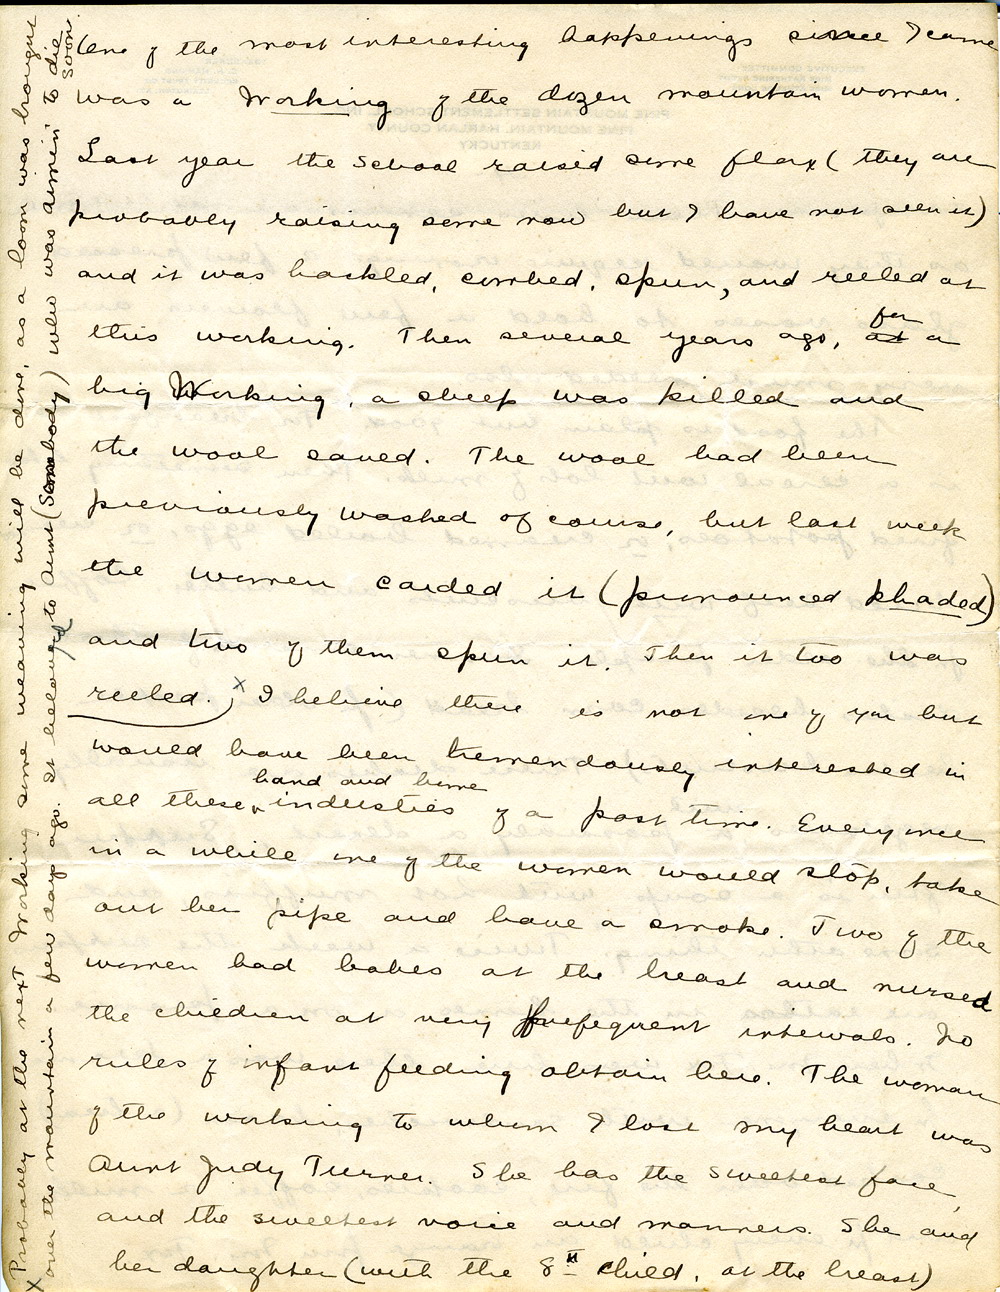 One of the most interesting happenings since I came
was a Working of the dozen mountain women.
Last year the school raised some flax (they are
probably raising some now but I have not seen it)
and it was hackled, combed, spun, and reeled at
this working. Then several years ago, at for a
big Working, a sheep was killed and
the wool saved. The wool had been
previously washed of course, but last week
the women carded it (pronounced kyaded)
and two of them spun it. Then it too was
reeled. x I believe there is not one of you but
would have been tremendously interested in
all these hand and home industies of a past time. Every once
in a while one of the women would stop, take
out her pipe and have a smoke. Two of the
women had babes at the breast and nursed
the children at very frequent intervals. No
rules of infant feeding obtain here. The woman
of the working to whom I lost my heart was
Aunt Judy Turner. She has the sweetest face,
and the sweetest voice and manners. She and
her daughter (with the 8th child, at the breast)
x Probably at the next Working some weaving will be done, as a loom was brought
over the mountain a few days ago. It belonged to Aunt (Somebody) who was aimin' to die
soon.
EXECUTIVE COMMITTEE
PINE MOUNTAIN SETTLEMENT SCHOOL, INC.
PINE MOUNTAIN, HARLAN COUNTY
KENTUCKY